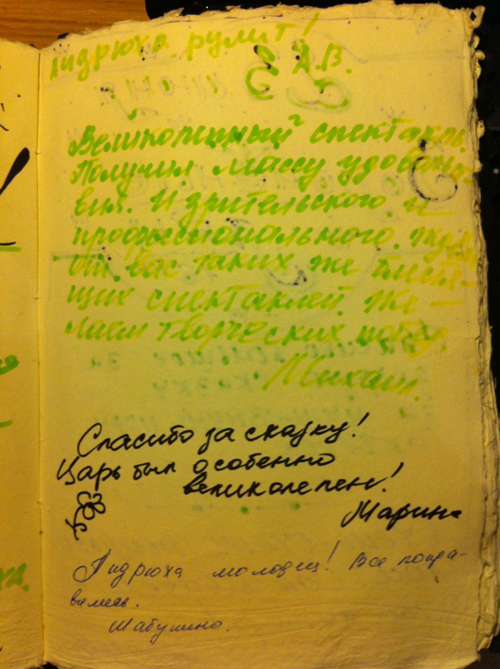 Андрюха рулит!
Я.В.
Великолепный спектакль.
Получил массу удоволь-
вия. И зрительского и
профессионального. Ждём
от вас таких же блестя-
щих спектаклей. Же-
лаем творческих побед
Михаил.
Спасибо за сказку!
Царь был особенно
великолепен!
Марина
Андрюха молодец! Все понра-
вилось.
Шабунина.